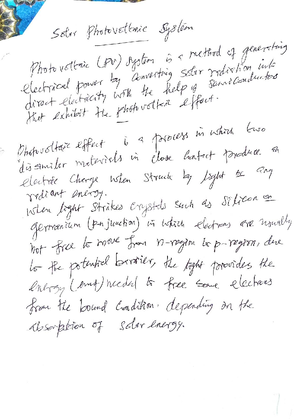 Solar Photovoltaic System
Photovoltaic (PV) System is a method of generating
electrical power by converting solar radiation into
direct electricity with the help of Semiconductors
that exhibit the photovoltaic effect.
Photovoltaic effect is a process in which two
dissimilar materials in close contact produce an
electric charge when struck by light or any
radiant energy.
When light strikes crystals such as Silicon or
germanium (pn junction) in which electrons are usually
not free to move from n-region to p-region, due
to the potential barrier, the light provides the
energy needed to free some electrons
from the bound condition. depending on the
absorption of solar energy.